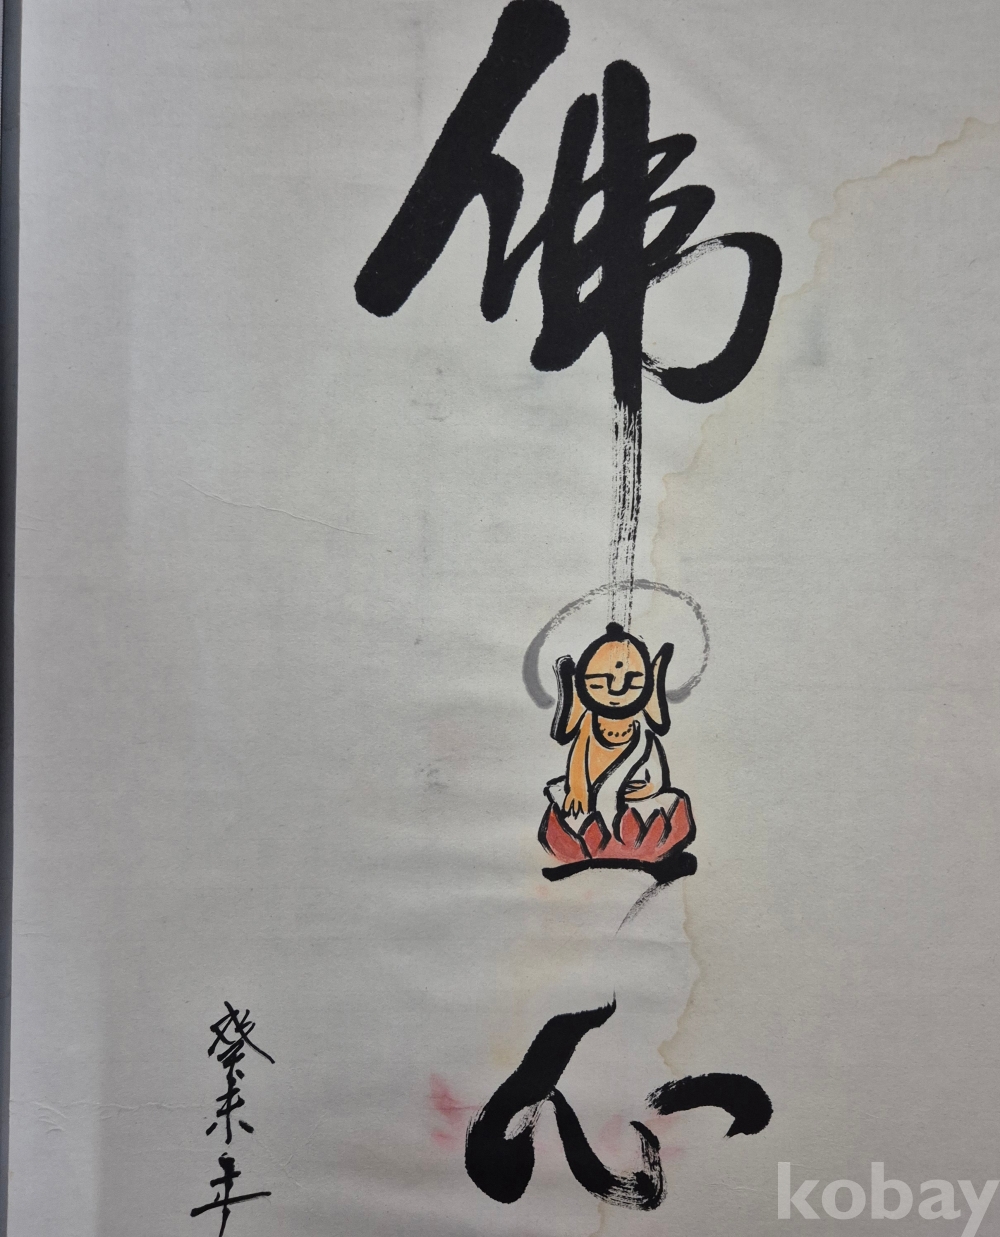 佛心
癸未年
kobay